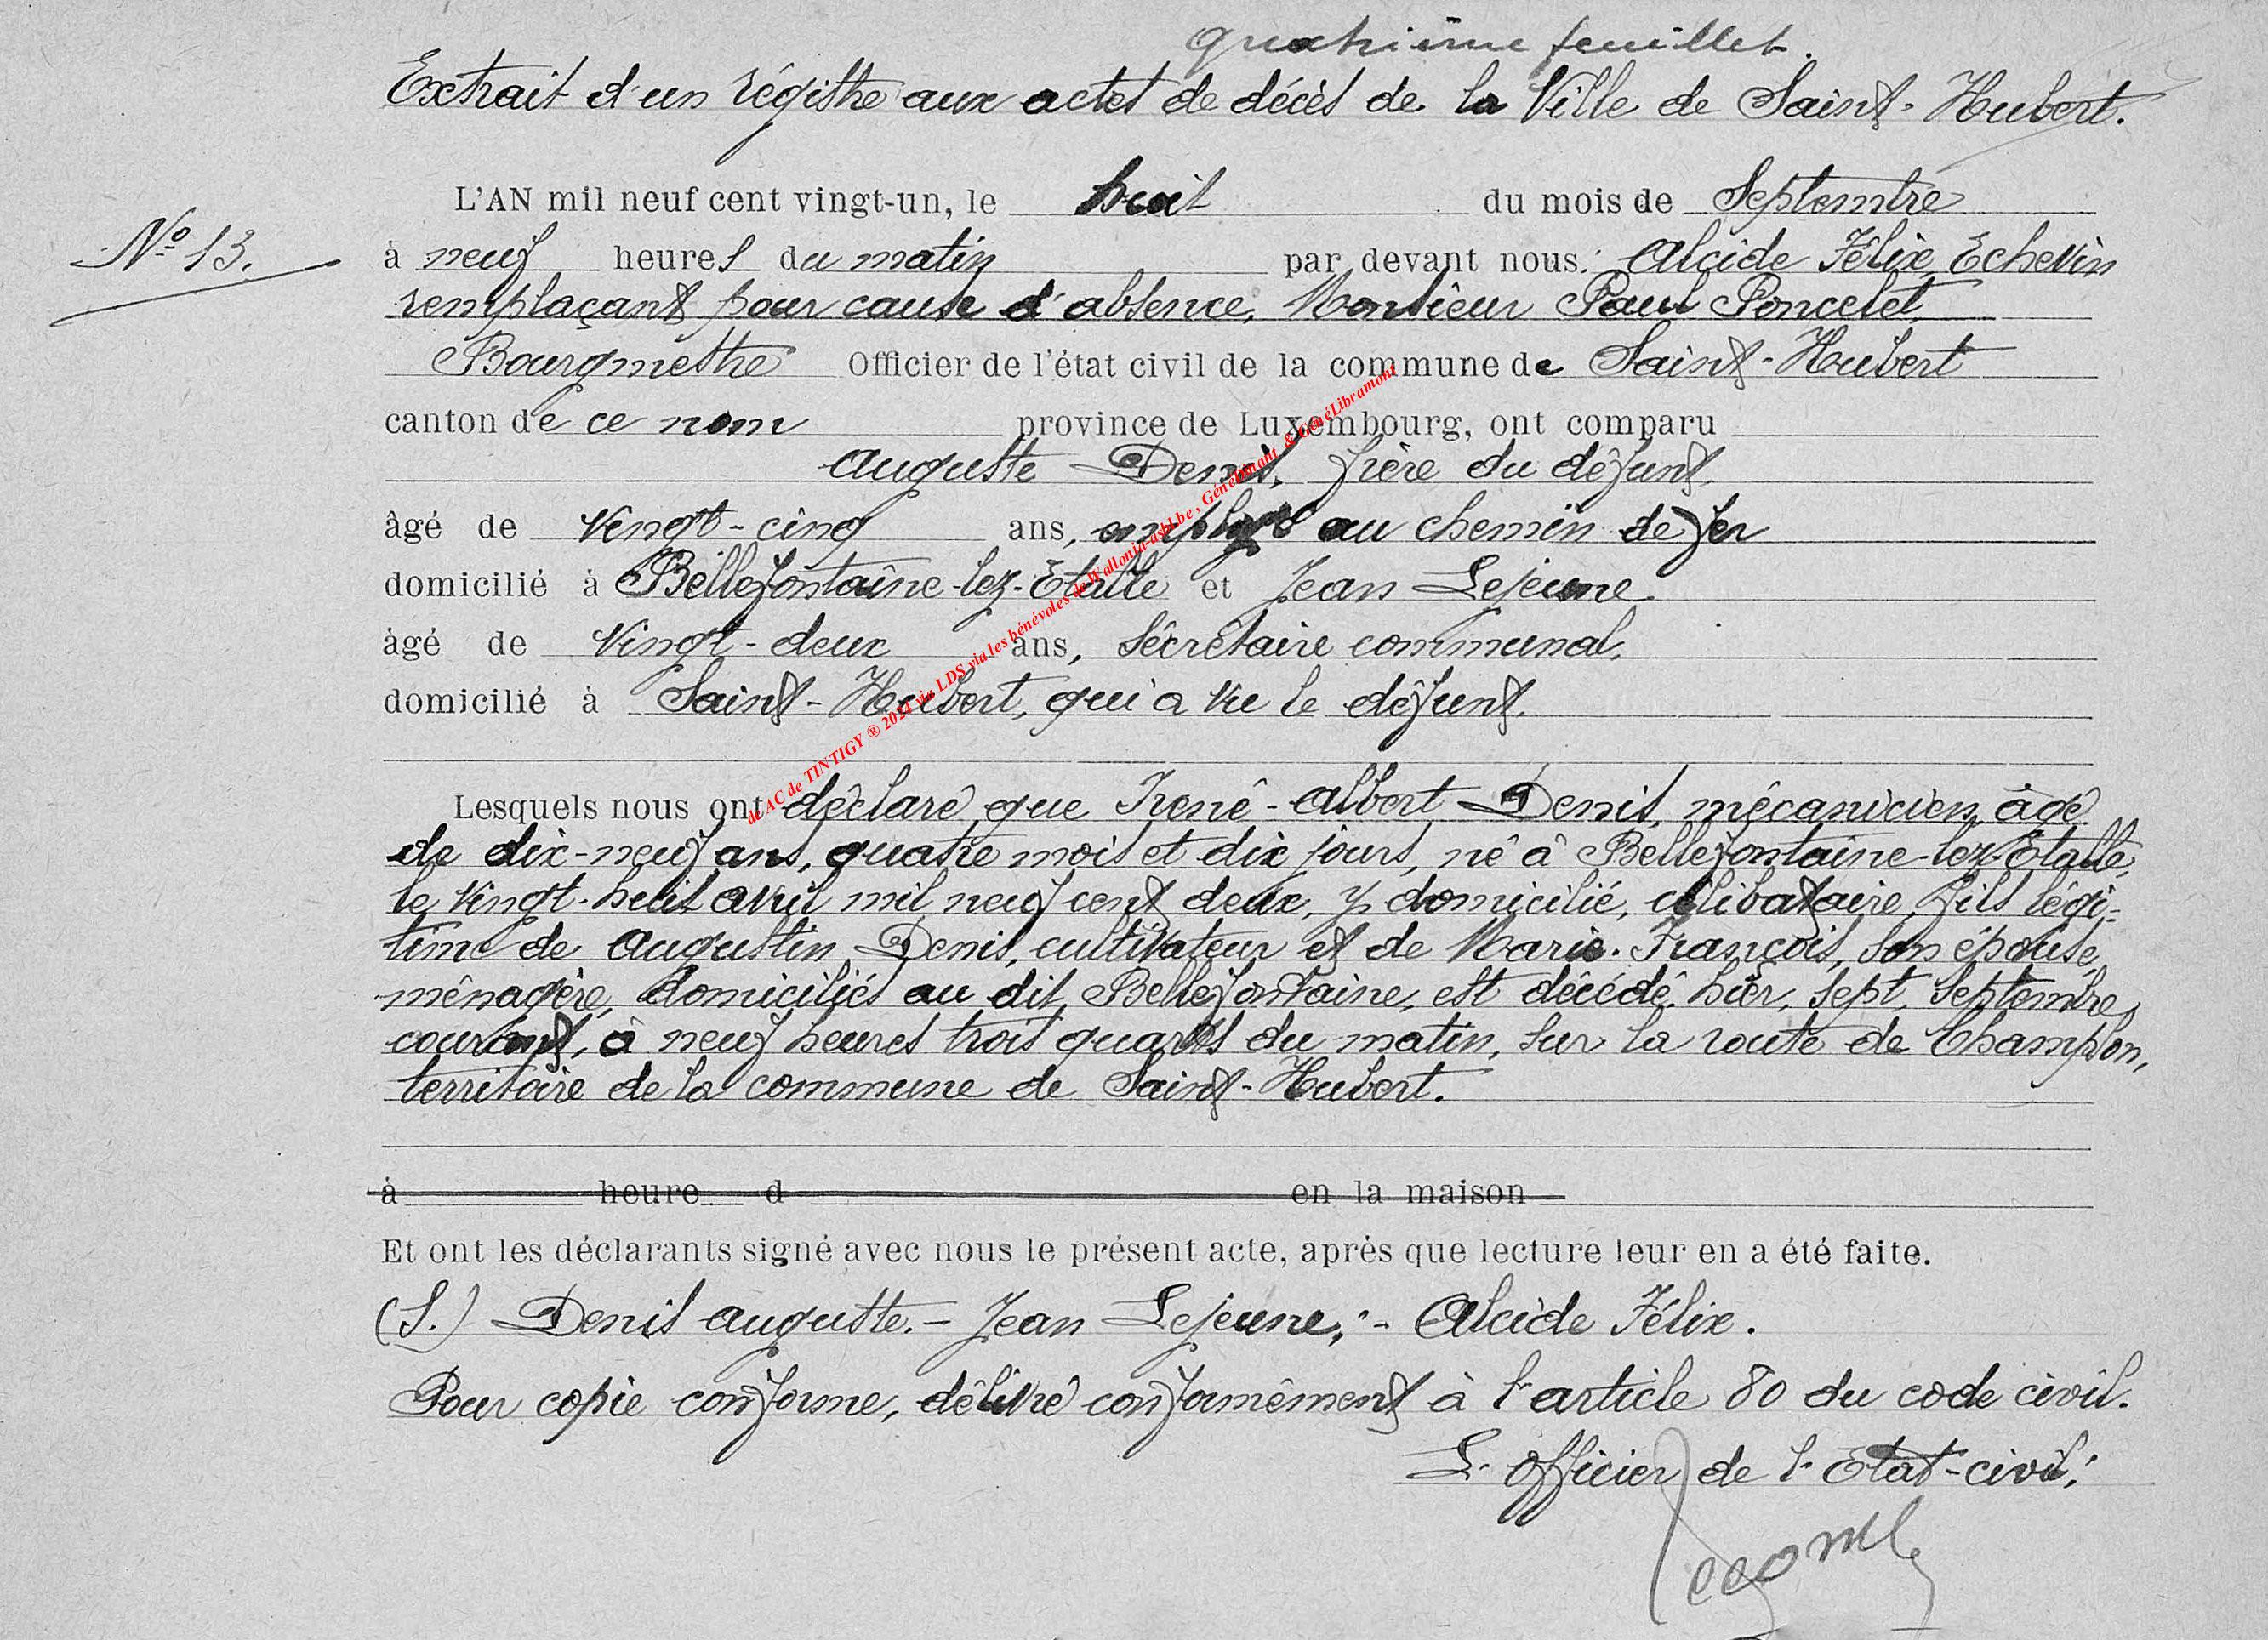 quatrième feuillet.
Extrait d'un régistre aux actes de décès de la Ville de Saint-Hubert.
L'AN mil neuf cent vingt-un, le huit du mois de Septembre
N° 13.
à neuf heures du matin par devant nous: Alcide Félix, Echevin
remplaçant pour cause d'absence, Monsieur Paul Poncelet,
Bourgmestre Officier de l'état civil de la commune de Saint-Hubert
canton de ce nom province de Luxembourg, ont comparu
Auguste Denis, frère du défunt,
âgé de vingt-cinq ans, employé au chemin de fer
domicilié à Bellefontaine-lez-Etalle et Jean Lejeune
âgé de vingt-deux ans, sécrétaire communal,
domicilié à Saint-Hubert, qui a vu le défunt.
de AC de TINTIGY ® 2024 via LDS via les bénévoles de Wallonia-asbl.be, Génédinant & GénéLibramont
Lesquels nous ont déclaré que Irené-Albert Denis, mécanicien, âgé
de dix-neuf ans, quatre mois et dix jours, né à Bellefontaine-lez-Etalle,
le vingt-huit avril mil neuf cent deux, y domicilié, célibataire, fils légi-
time de Augustin Denis, cultivateur et de Marie François, son épouse,
ménagère, domiciliés au dit Bellefontaine, est décédé hier, sept, Septembre
courant, à neuf heures trois quarts du matin, sur la route de Champlon,
territoire de la commune de Saint-Hubert.
à heure d en la maison
Et ont les déclarants signé avec nous le présent acte, après que lecture leur en a été faite.
(S.) Denis Auguste.- Jean Lejeune,;- Alcide Félix.
Pour copie conforme, délivré conformément à l'article 80 du code civil.
L'officier de l'Etat-civil: